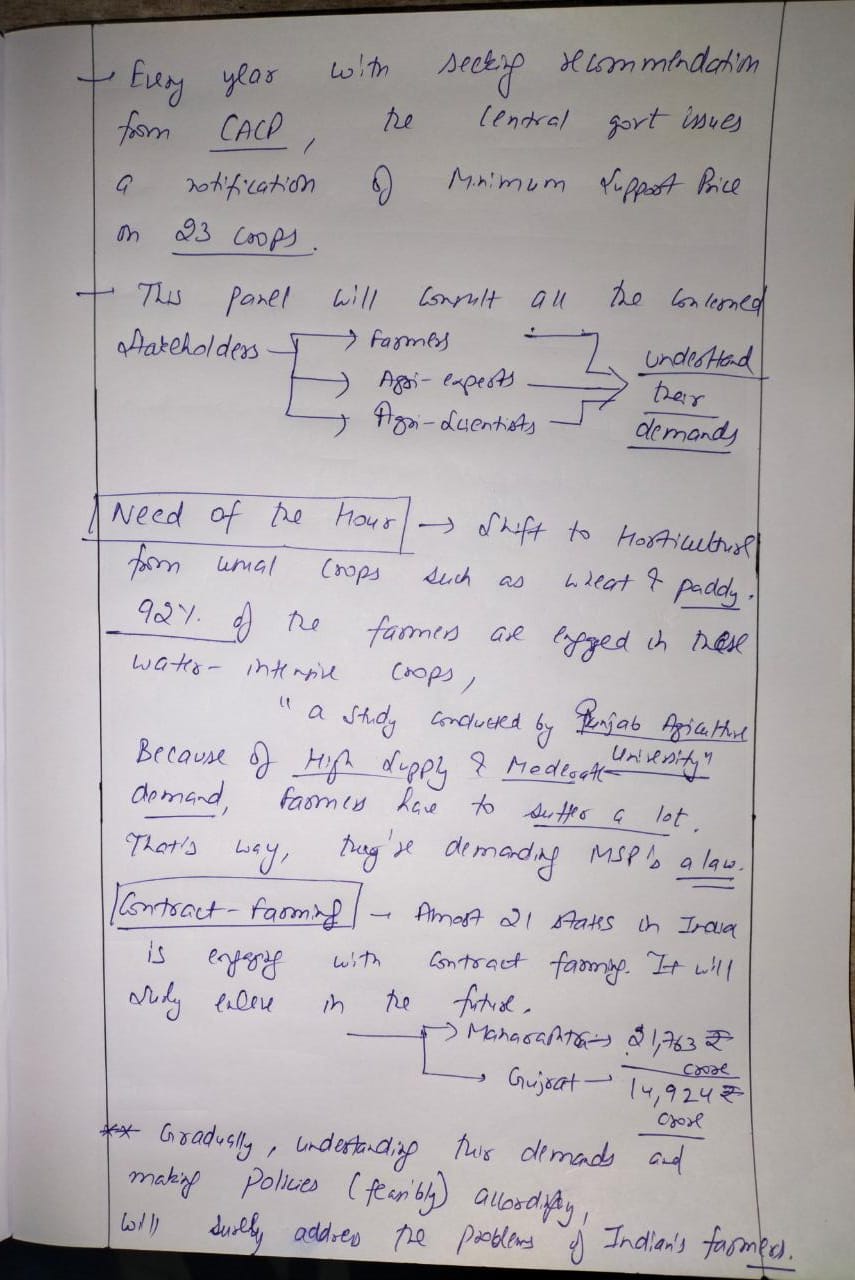 → Every year with seeking recommendation
from CACP, the Central govt issues
a notification of Minimum Support Price
on 23 crops.
→ This panel will consult all the concerned
Stakeholders → Farmers
→ Agri-experts
→ Agri-Scientists
understand
their
demands
Need of the Hour → Shift to Horticulture
from usual crops such as wheat & paddy.
92% of the farmers are engged in these
water-intensive crops,
" a study conducted by Punjab Agiculture
University"
Because of High Supply & Moderate
demand, farmers have to suffer a lot.
That's way, they're demanding MSP's a law.
Contract-farming - Amost 21 states in India
is engaging with contract farming. It will
in the future.
→ Maharashtra → 21,763 ₹
crore
→ Gujrat → 14,924 ₹
crore
** Gradually, understanding their demands and
making policies (feasibly) accordingly,
will surely address the problems of Indian's farmers.